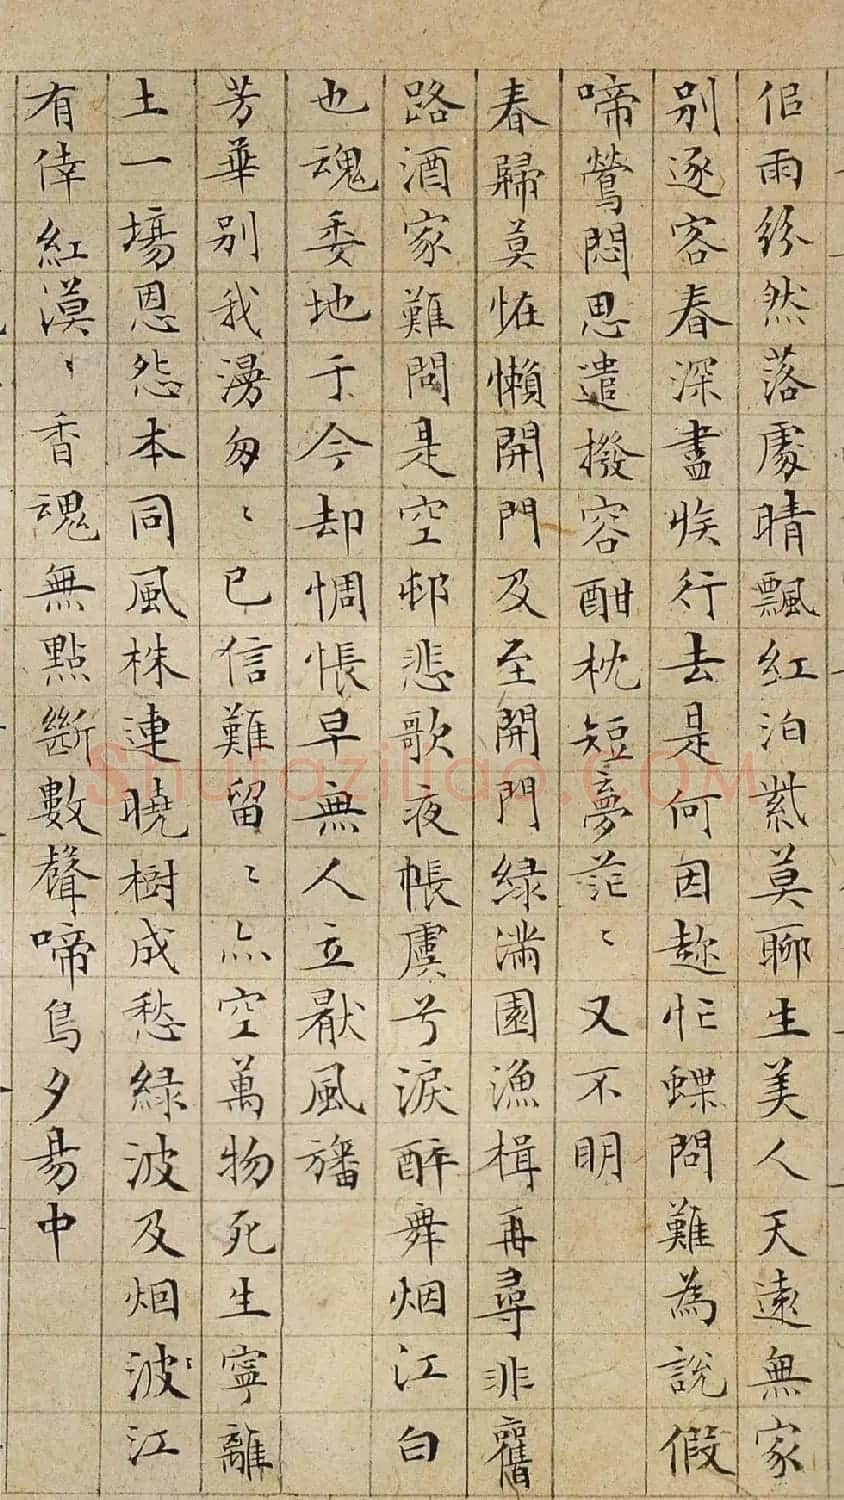 佀雨紛然落處晴飄紅泊紫莫聊生美人天遠無家
別逐客春深盡族行去是何因趂忙蝶問難為說假
啼鶯悶思遣撥容酣枕短夢茫〻又不明
春歸莫恠懶開門及至開門綠滿園漁楫再尋非舊
路酒家難問是空邨悲歌夜帳虞兮淚醉舞烟江白
也魂委地于今却惆悵早無人立厭風旛
芳華別我漫匆〻已信難留〻亦空萬物死生寧離
土一場恩怨本同風株連曉樹成愁綠波及烟波江
有倖紅漠〻香魂無點斷數聲啼鳥夕昜中
Shufaziliao.COM